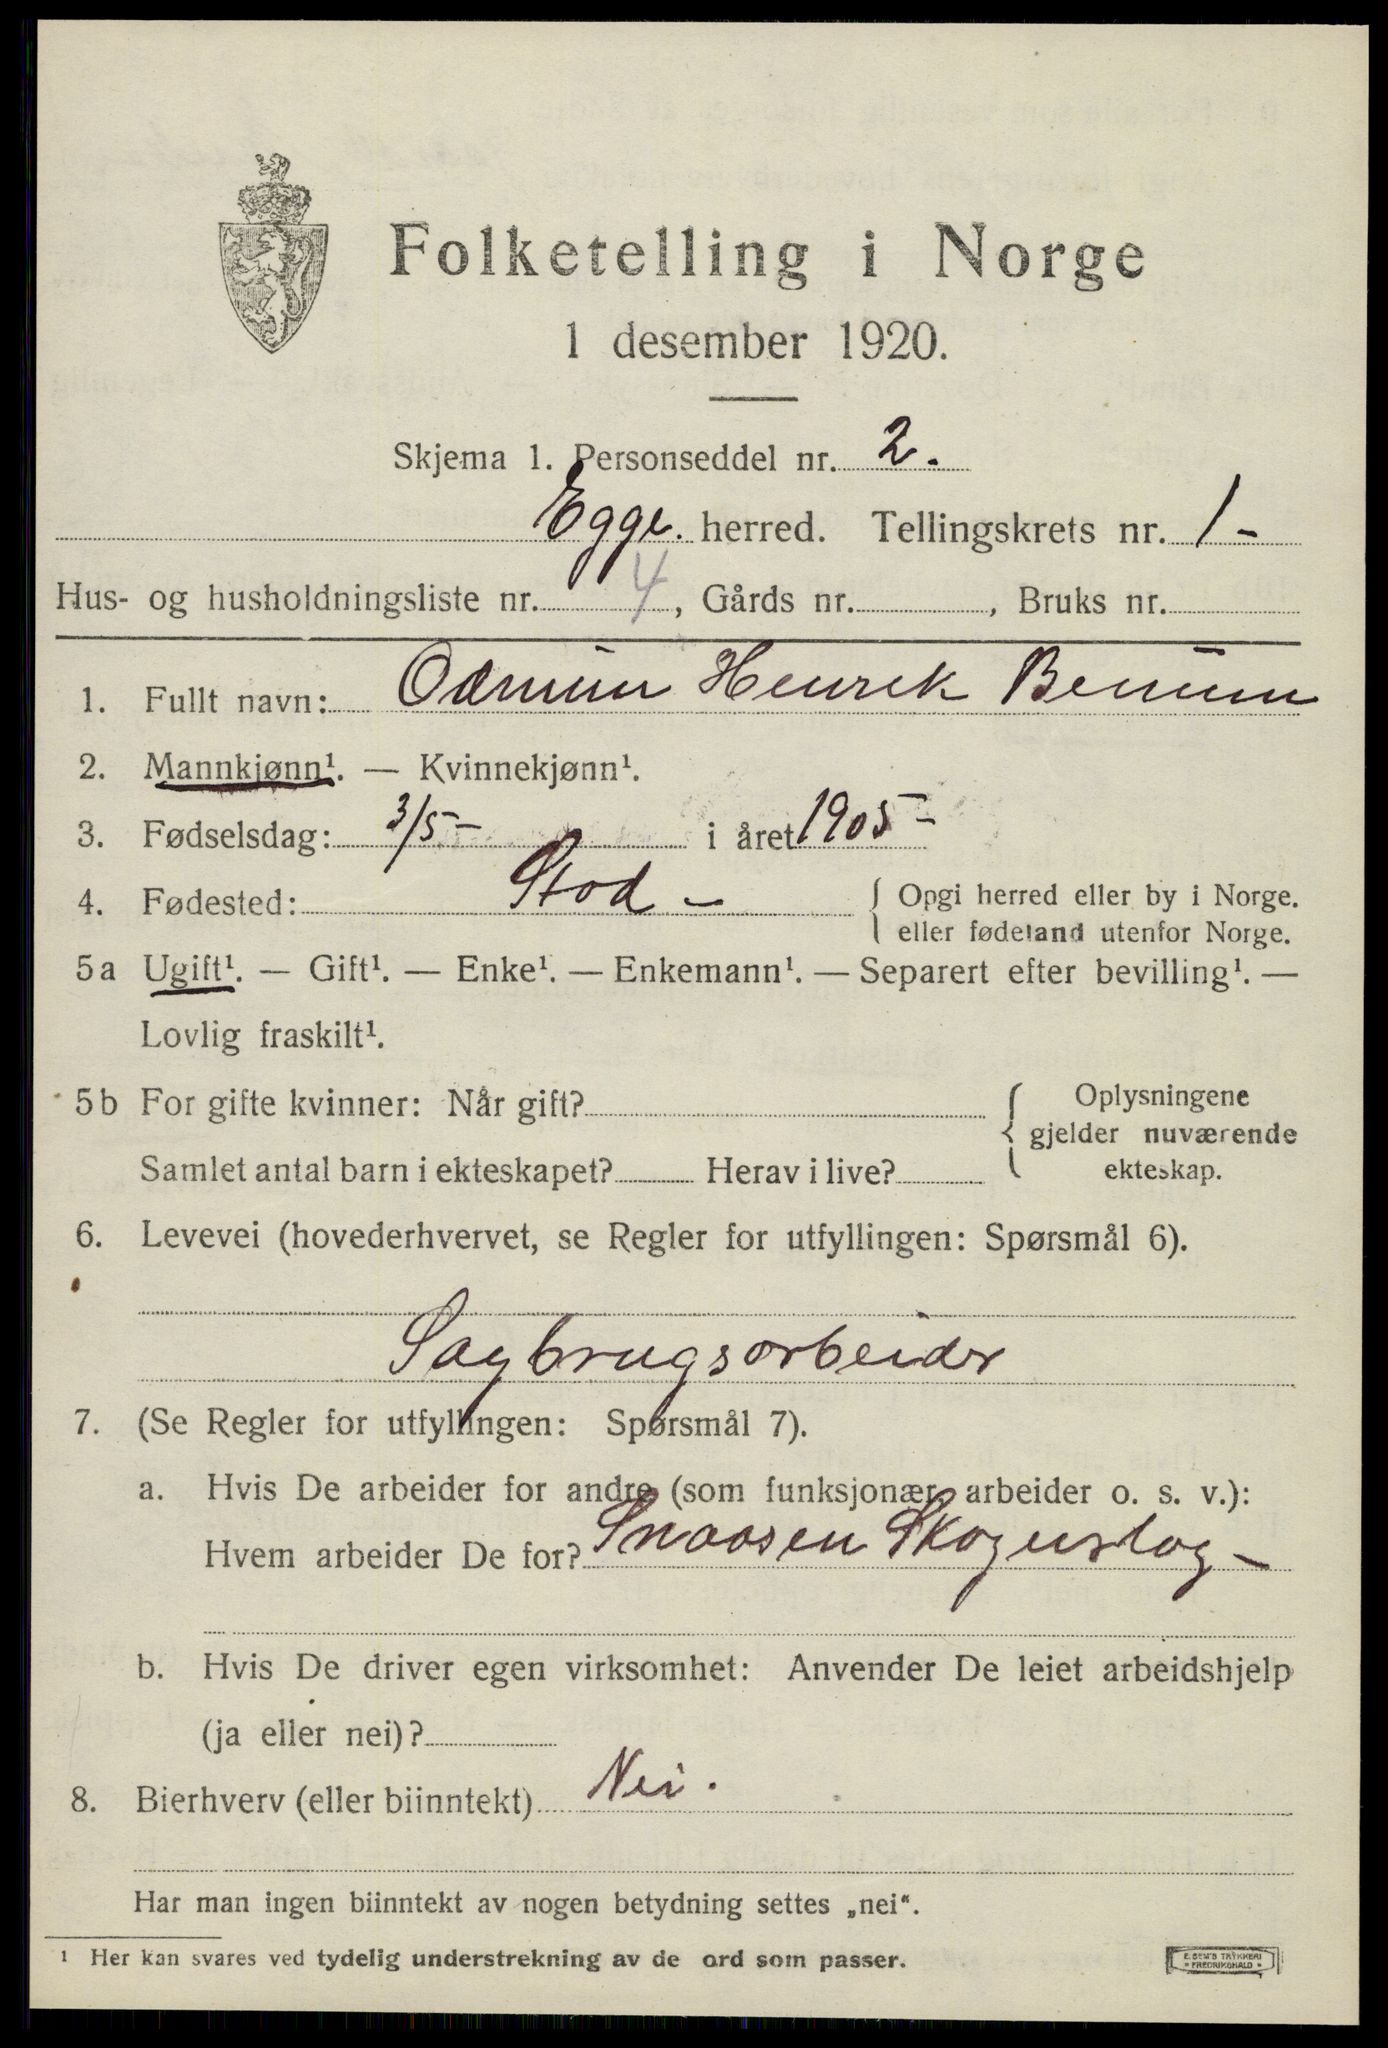 Folketelling i Norge
1 desember 1920.
Skjema 1. Personseddel nr. 2.
Egge. herred. Tellingskrets nr. 1 -
Hus- og husholdningsliste nr. 4, Gårds nr. , Bruks nr.
1. Fullt navn: Henrik
2. Mannkjønn¹. — Kvinnekjønn¹.
3. Fødselsdag: 3/5 - i året 1905 -
4. Fødested: Stod - { Opgi herred eller by i Norge.
eller fødeland utenfor Norge.
5a Ugift¹. — Gift¹. — Enke¹. — Enkemann¹. — Separert efter bevilling¹. —
Lovlig fraskilt¹.
5b For gifte kvinner: Når gift? { Oplysningene
gjelder nuværende
Samlet antal barn i ekteskapet? Herav i live? ekteskap.
6. Levevei (hovederhvervet, se Regler for utfyllingen: Spørsmål 6).
Sagbrugsarbeider
7. (Se Regler for utfyllingen: Spørsmål 7).
a. Hvis De arbeider for andre (som funksjonær, arbeider o. s. v.):
Hvem arbeider De for? Snaasen Skogenslag -
b. Hvis De driver egen virksomhet: Anvender De leiet arbeidshjelp
(ja eller nei)?
8. Bierhverv (eller biinntekt) Nei.
Har man ingen biinntekt av nogen betydning settes „nei“.
¹ Her kan svares ved tydelig understrekning av de ord som passer.
E. SEM'S TRYKKERI
FREDRIKSHALD